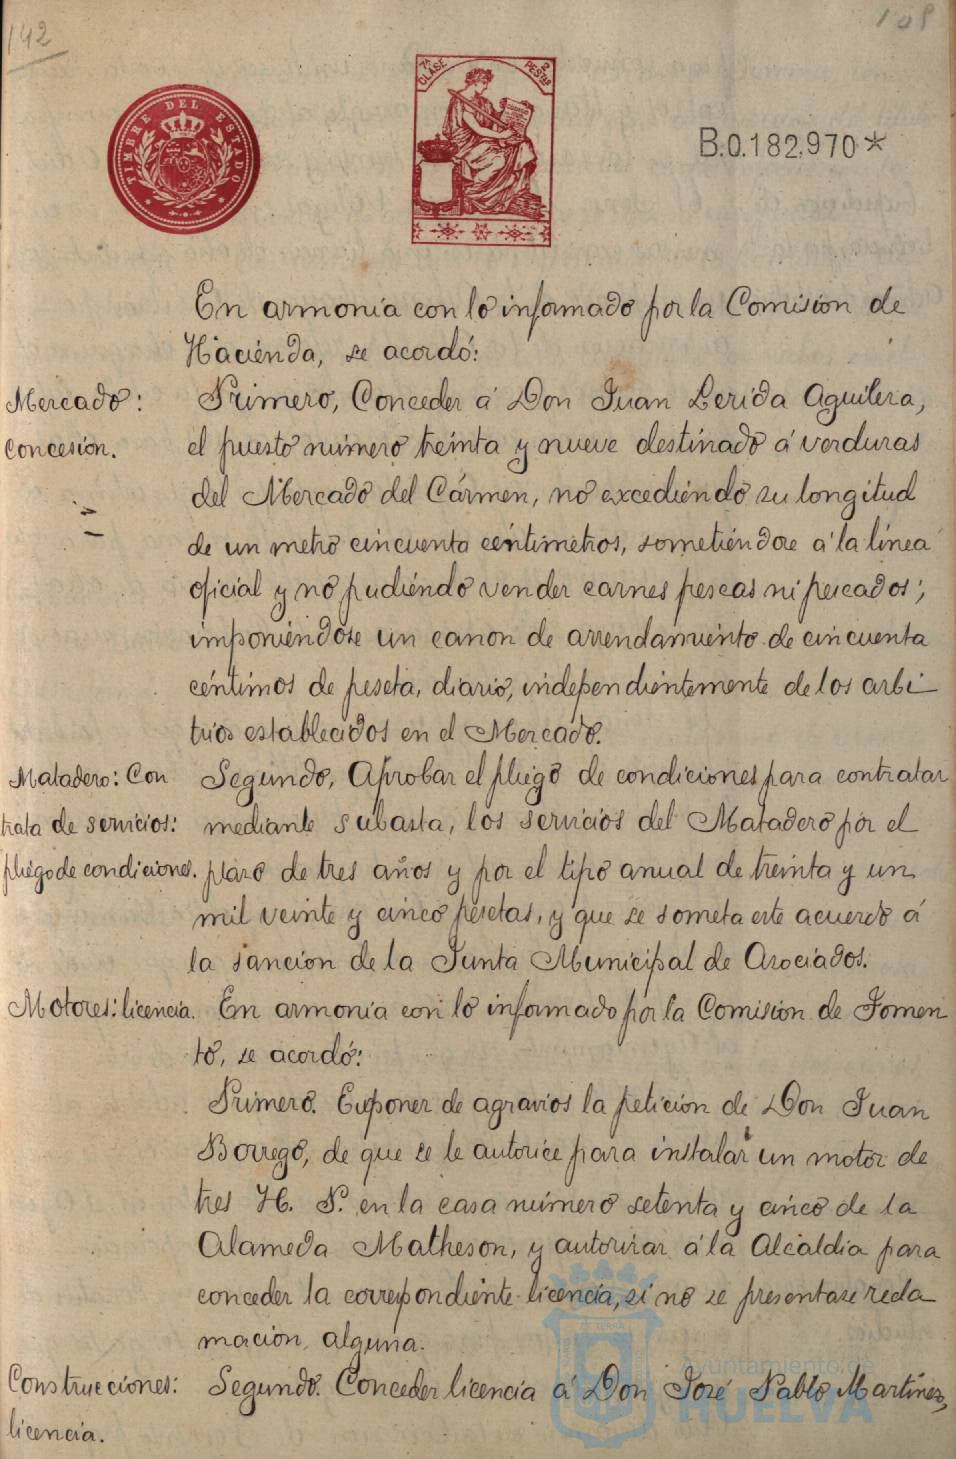 142
TIMBRE DEL ESTADO
7ª CLASE
2 PESTAS
B.0.182,970*
En armonía con lo informado por la Comision de
Hacienda, se acordó:
Mercado:
concesion.
Primero, Conceder á Don Juan Lerida Aguilera,
el puesto número treinta y nueve destinado á verduras
del Mercado del Cármen, no excediendo su longitud
de un metro cincuenta céntimetros, sometiéndose á la línea
oficial y no pudiéndo vender carnes frescas ni pescados;
imponiéndose un canon de arrendamiento de cincuenta
céntimos de peseta, diario, independientemente de los arbi
trios establecidos en el Mercado.
Matadero: Con
trata de servicios:
pliego de condiciones.
Segundo, Aprobar el pliego de condiciones para contratar
mediante subasta, los servicios del Matadero por el
plazo de tres años y por el tipo anual de treinta y un
mil veinte y cinco pesetas, y que se someta este acuerdo á
la sancion de la Junta Municipal de Asociados.
Motores: licencia.
En armonía con lo informado por la Comision de Fomen
to, se acordó:
Primero. Exponer de agravios la peticion de Don Juan
Borrego, de que se le autorice para instalar un motor de
tres H. P. en la casa número setenta y cinco de la
Alameda Matheson, y autorizar á la Alcaldia para
conceder la correspondiente licencia, si no se presentase recla
macion alguna.
Construcciones:
licencia.
Segundo. Conceder licencia á Don José Pablo Martínez,
Ayuntamiento de
HUELVA